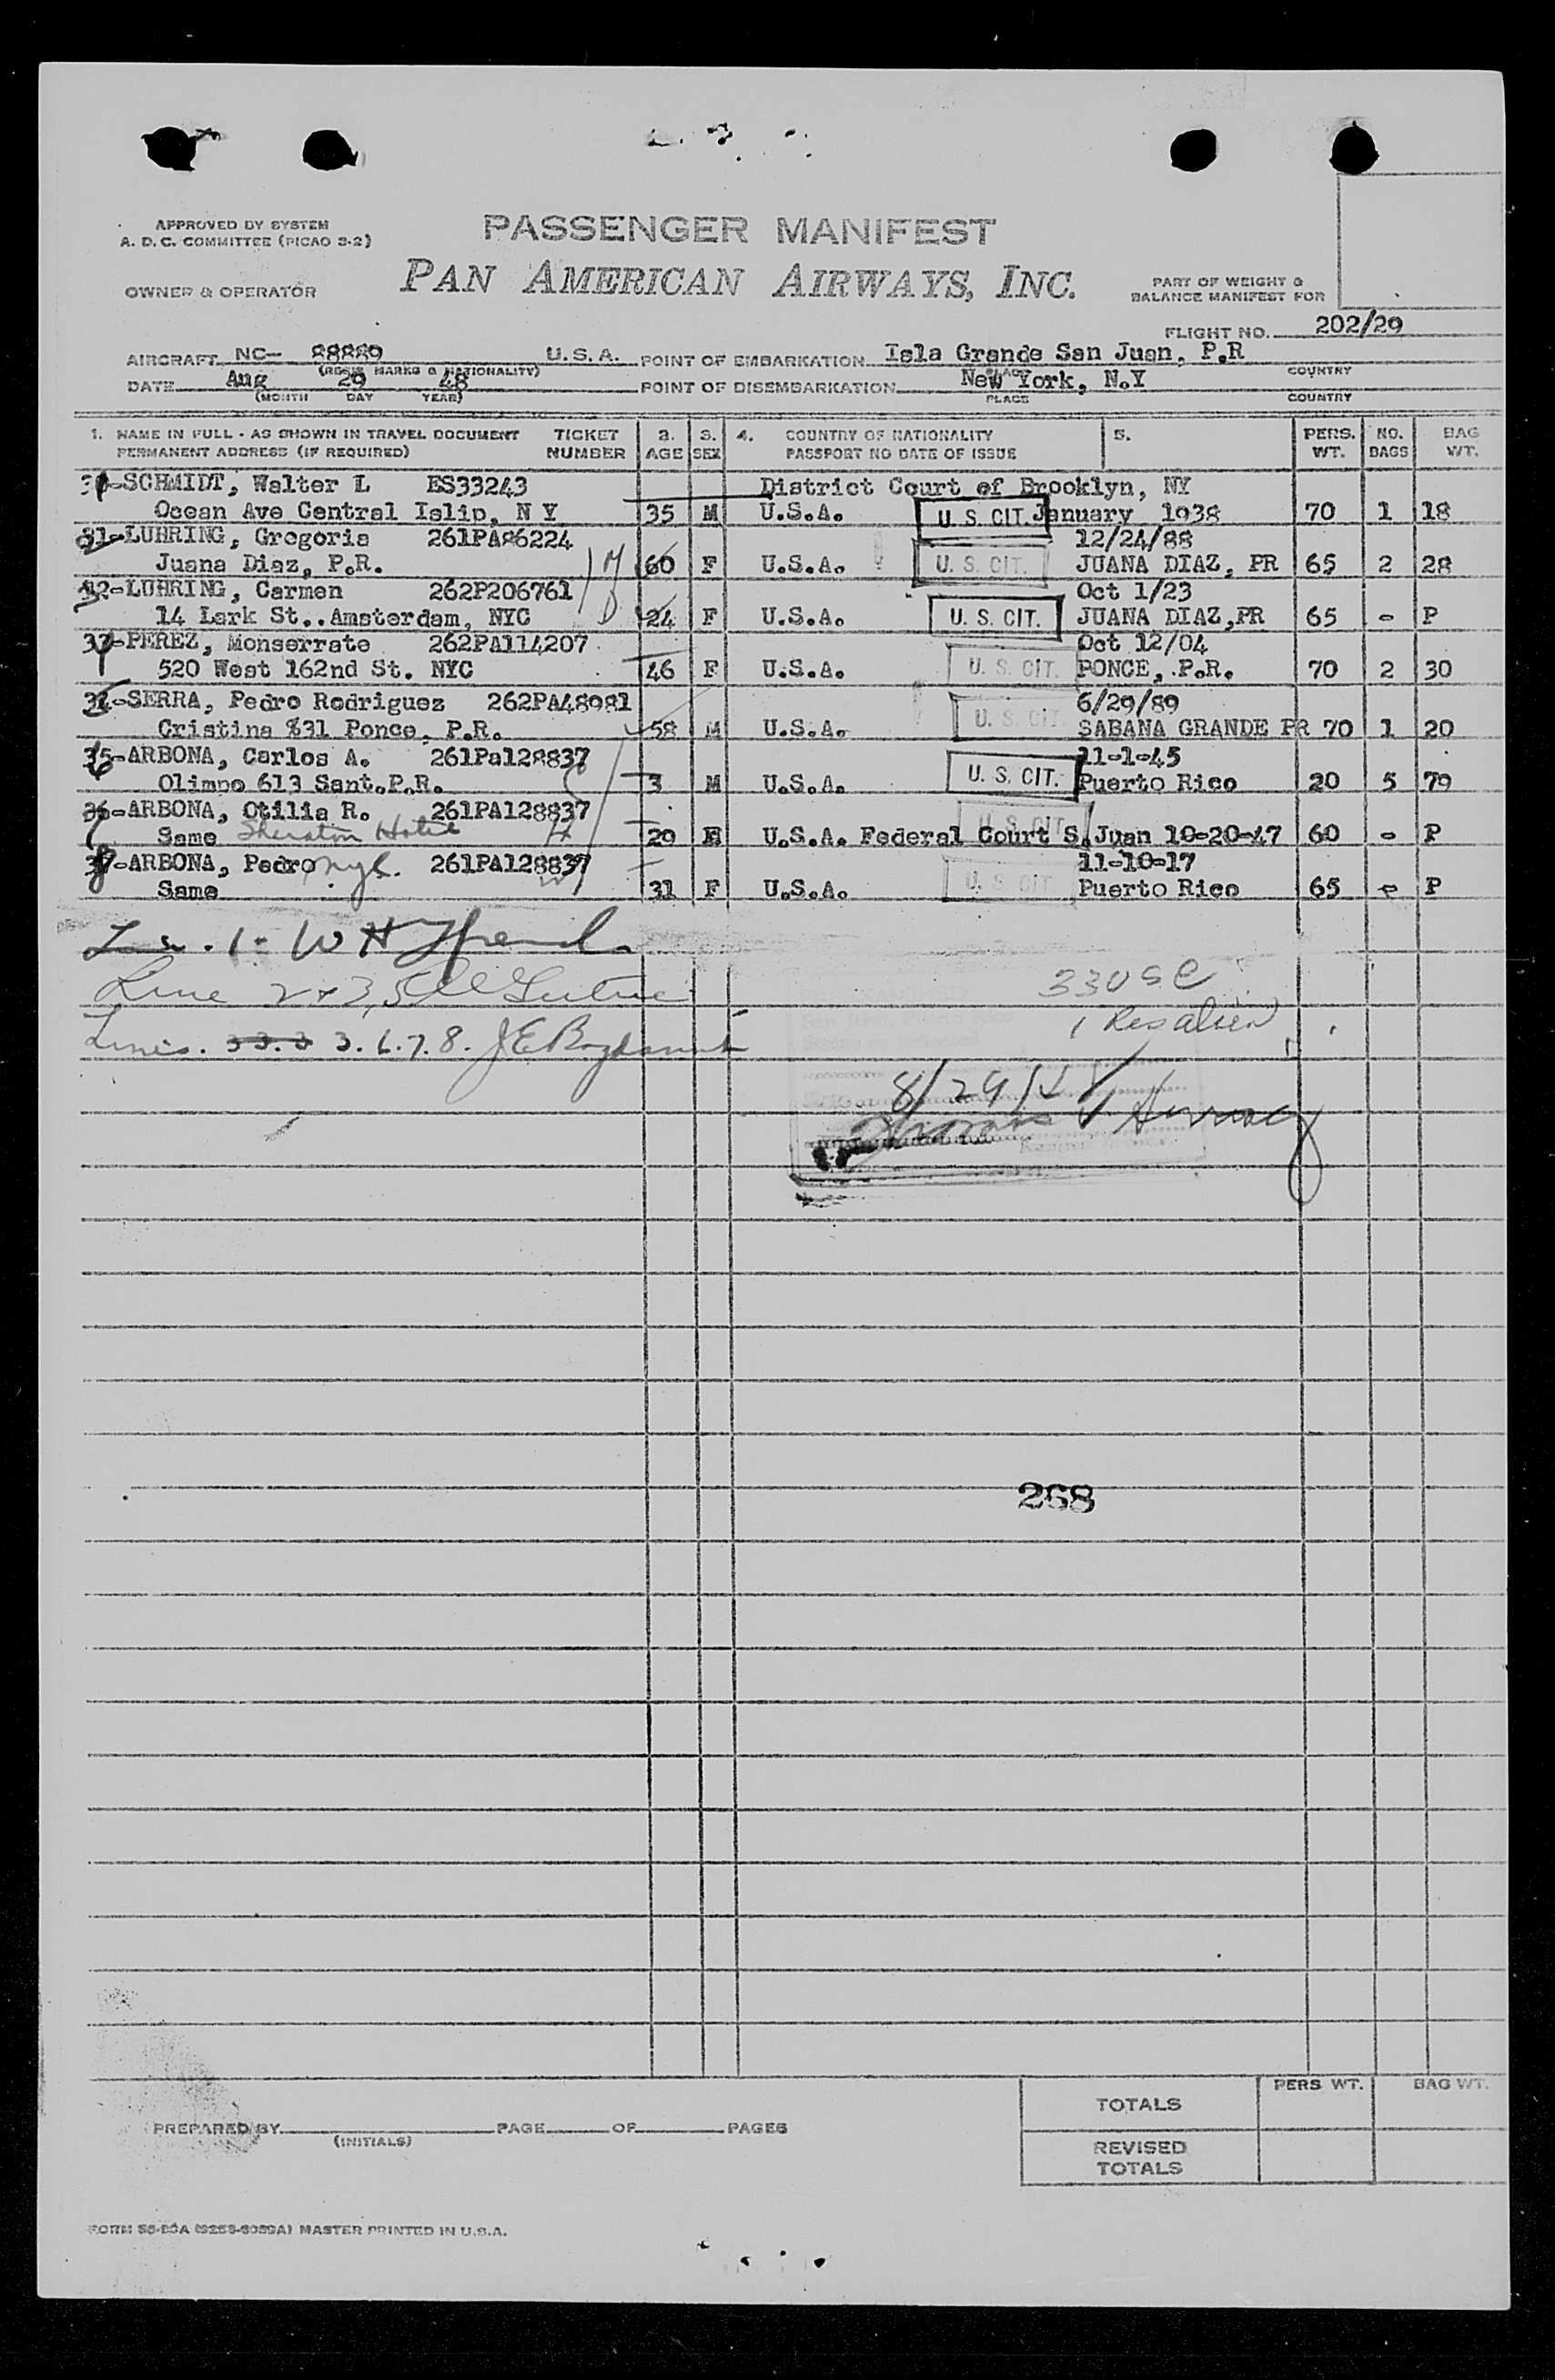 APPROVED BY SYSTEM
A. D. C. COMMITTEE (PICAO 2-2)
PASSENGER MANIFEST
OWNER & OPERATOR
PAN AMERICAN AIRWAYS, INC.
PART OF WEIGHT &
BALANCE MANIFEST FOR
FLIGHT NO. 202/29
AIRCRAFT NC- 88889 U.S.A. POINT OF EMBARKATION Isla Grande San Juan, P.R
(REGIS MARKS & NATIONALITY) PLACE COUNTRY
DATE Aug 29 48 POINT OF DISEMBARKATION New York, N.Y
(MONTH DAY YEAR) PLACE COUNTRY
1. NAME IN FULL - AS SHOWN IN TRAVEL DOCUMENT TICKET 2. 3. 4. COUNTRY OF NATIONALITY 5. PERS. NO. BAG
PERMANENT ADDRESS (IF REQUIRED) NUMBER AGE SEX PASSPORT NO DATE OF ISSUE WT. BAGS WT.
30-SCHMIDT, Walter L ES33243 District Court of Brooklyn, NY
Ocean Ave Central Islip, N Y 35 M U.S.A. U. S. CIT. January 1938 70 1 18
31-LUHRING, Gregoria 261PA86224 12/24/88
Juana Diaz, P.R. 60 F U.S.A. U. S. CIT. JUANA DIAZ, PR 65 2 28
32-LUHRING, Carmen 262P206761 Oct 1/23
14 Lark St..Amsterdam, NYC 24 F U.S.A. U. S. CIT. JUANA DIAZ,PR 65 - P
33-PEREZ, Monserrate 262PA114207 Oct 12/04
520 West 162nd St. NYC 46 F U.S.A. U. S. CIT. PONCE, P.R. 70 2 30
34-SERRA, Pedro Rodriguez 262PA48981 6/29/89
Cristina %31 Ponce, P.R. 58 M U.S.A. U. S. CIT. SABANA GRANDE PR 70 1 20
35-ARBONA, Carlos A. 261Pa128837 11-1-45
Olimpo 613 Sant.P.R. 3 M U.S.A. U. S. CIT. Puerto Rico 20 5 79
36-ARBONA, Otilia R. 261PA128837 U. S. CIT.
Same Sheraton Hotel 29 U.S.A. Federal Court S.Juan 10-20-47 60 - P
37-ARBONA, Pedro nyc. 261PA128837 11-10-17
Same 31 F U.S.A. U. S. CIT Puerto Rico 65 - P
1- W H
Line 2 & 3, 5
330 SC
Lines. 3. 6. 7. 8. J E
1 Res alien
8/29/48
268
TOTALS PERS WT. BAG WT.
PREPARED BY PAGE OF PAGES
(INITIALS)
REVISED
TOTALS
MASTER PRINTED IN U.S.A.